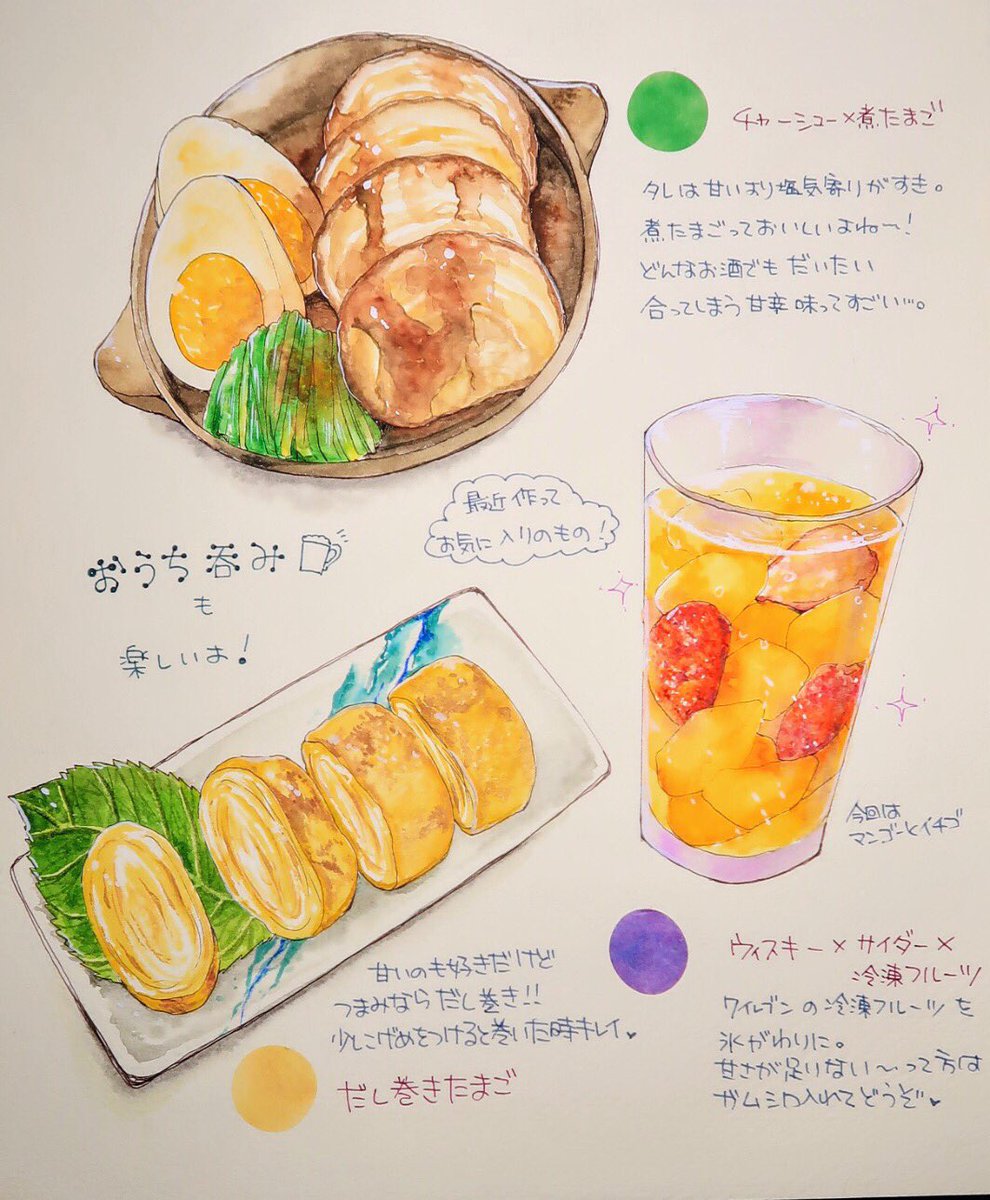 チャーシュー×煮たまご
タレは甘いより塩気寄りがすき。
煮たまごっておいしいよね〜!
どんなお酒でもだいたい
合ってしまう甘辛味ってすごい…。
最近作って
お気に入りのもの!
おうち呑み
も
楽しいよ!
今回は
マンゴーとイチゴ
ウィスキー×サイダー×
冷凍フルーツ
の冷凍フルーツを
氷がわりに。
甘さが足りない〜って方は
ガムシロ入れてどうぞ♥
甘いのも好きだけど
つまみならだし巻き!!
少しこげめをつけると巻いた時キレイ♥
だし巻きたまご